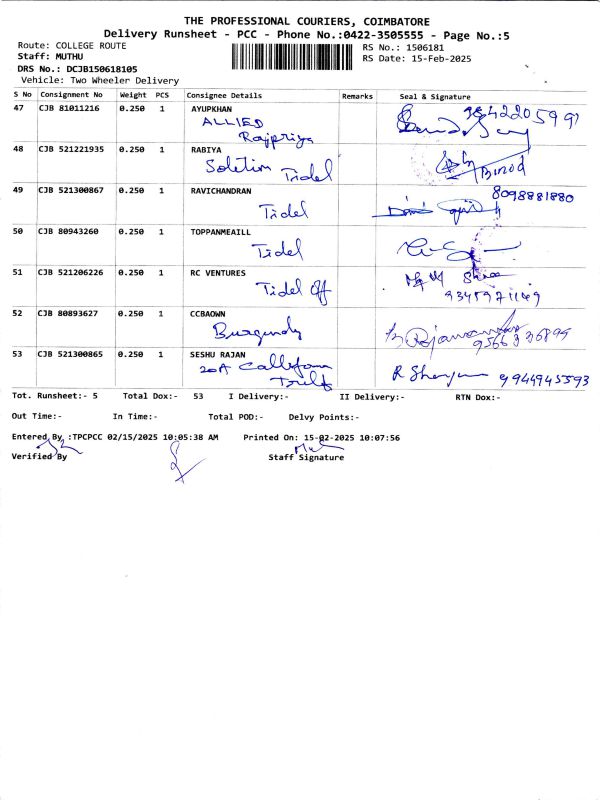 THE PROFESSIONAL COURIERS, COIMBATORE
Delivery Runsheet - PCC - Phone No.:0422-3505555 - Page No.:5
Route: COLLEGE ROUTE RS No.: 1506181
Staff: MUTHU RS Date: 15-Feb-2025
DRS No.: DCJB150618105
Vehicle: Two Wheeler Delivery
S No Consignment No Weight PCS Consignee Details Remarks Seal & Signature
47 CJB 81011216 0.250 1 AYUPKHAN
ALLIED
Rajpriya
48 CJB 521221935 0.250 1 RABIYA
Tidel Binod
49 CJB 521300867 0.250 1 RAVICHANDRAN 8098881880
Tidel
50 CJB 80943260 0.250 1 TOPPANMEAILL
Tidel
51 CJB 521206226 0.250 1 RC VENTURES
Tidel Off
52 CJB 80893627 0.250 1 CCBAOWN
Burgundy
53 CJB 521300865 0.250 1 SESHU RAJAN
20A 9944945593
Tot. Runsheet:- 5 Total Dox:- 53 I Delivery:- II Delivery:- RTN Dox:-
Out Time:- In Time:- Total POD:- Delvy Points:-
Entered By :TPCPCC 02/15/2025 10:05:38 AM Printed On: 15-02-2025 10:07:56
Verified By Staff Signature